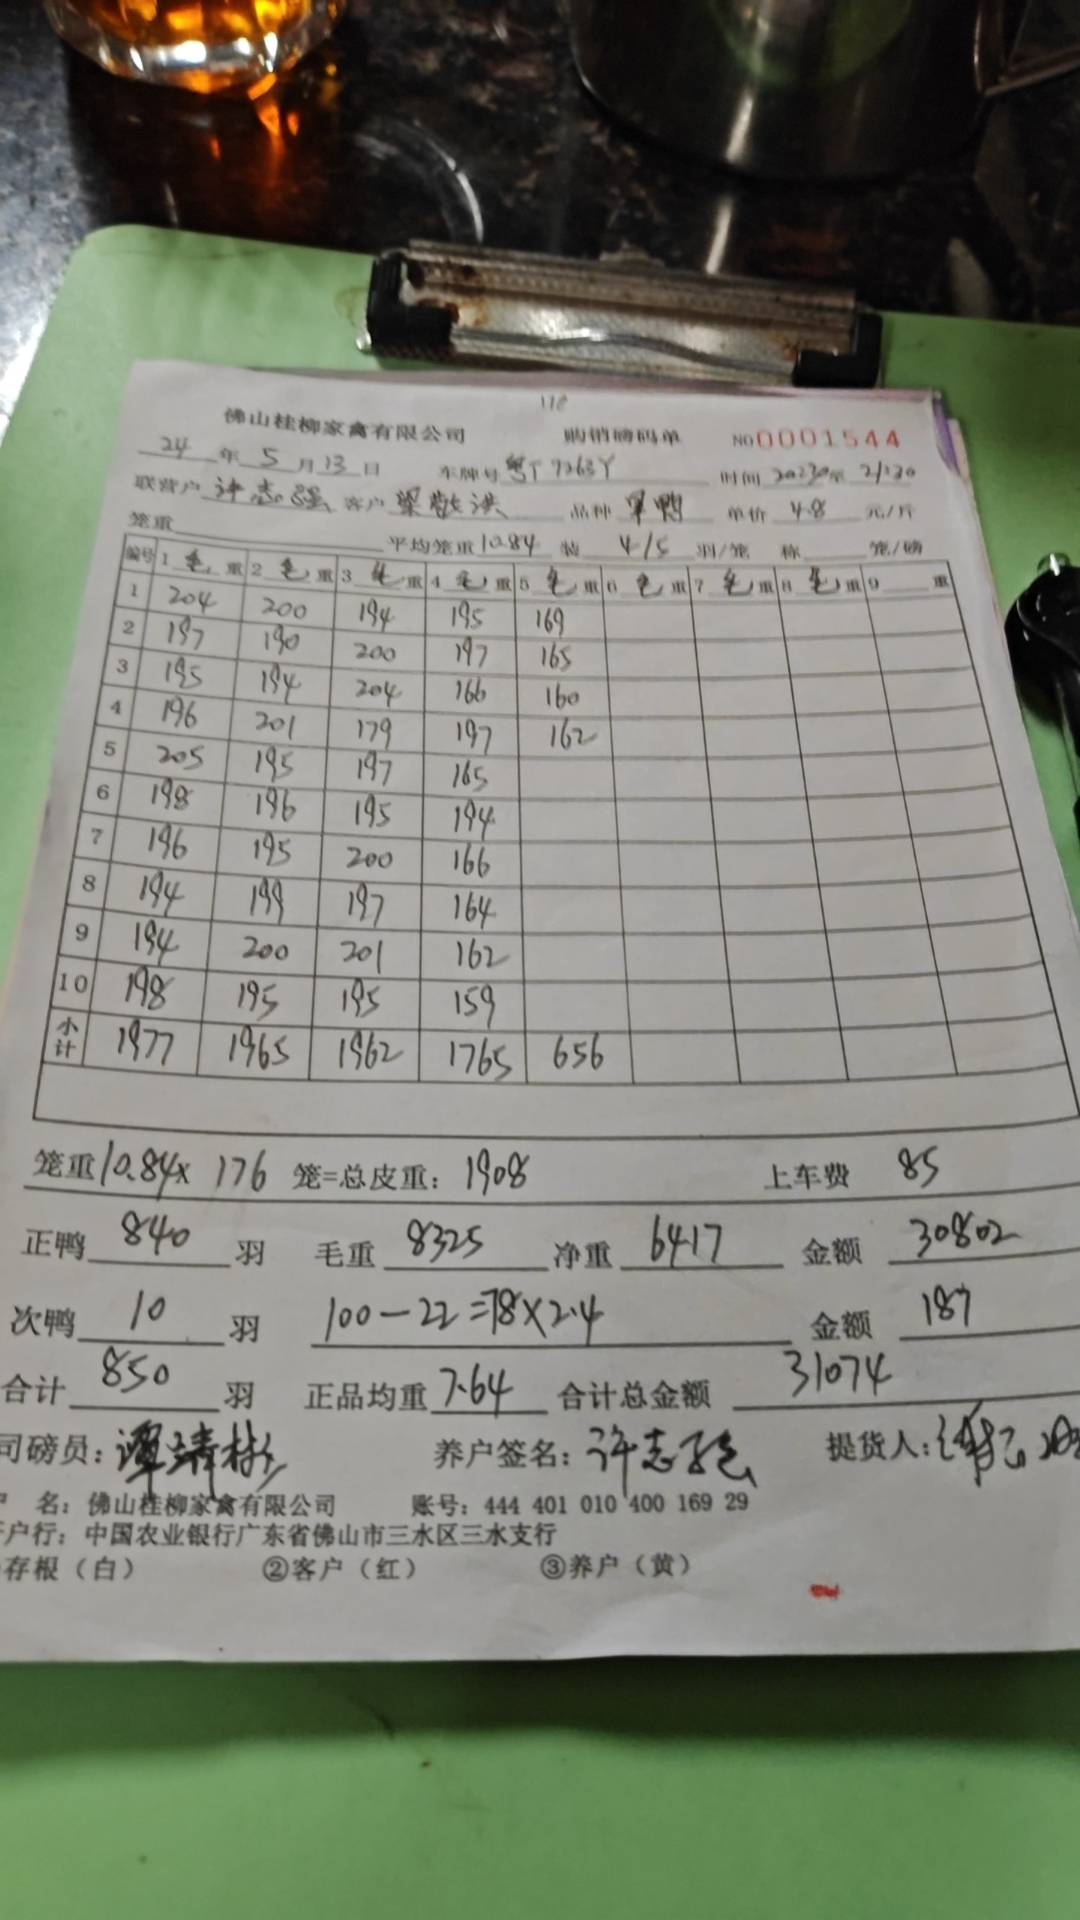 118
佛山桂柳家禽有限公司 购销磅码单 NO 0001544
24 年 5 月 13 日 车牌号 粤T 7263Y 时间 20:30 至 21:20
联营户 许志强 客户 梁敬洪 品种 单价 4.8 元/斤
笼重 平均笼重 10.84 装 4/5 羽/笼 称 笼/磅
编号 1 毛 重 2 毛 重 3 毛 重 4 毛 重 5 毛 重 6 毛 重 7 毛 重 8 毛 重 9 重
1 204 200 194 195 169
2 197 190 200 197 165
3 195 194 204 166 160
4 196 201 179 197 162
5 205 195 197 165
6 198 196 195 194
7 196 195 200 166
8 194 199 197 164
9 194 200 201 162
10 198 195 195 159
小计 1977 1965 1962 1765 656
笼重 10.84 x 176 笼=总皮重: 1908 上车费 85
正鸭 840 羽 毛重 8325 净重 6417 金额 30802
次鸭 10 羽 100-22=78×2.4 金额 187
合计 850 羽 正品均重 7.64 合计总金额 31074
司磅员: 谭靖彬 养户签名: 许志强 提货人:
名: 佛山桂柳家禽有限公司 账号: 444 401 010 400 169 29
户行: 中国农业银行广东省佛山市三水区三水支行
存根（白） ②客户（红） ③养户（黄）